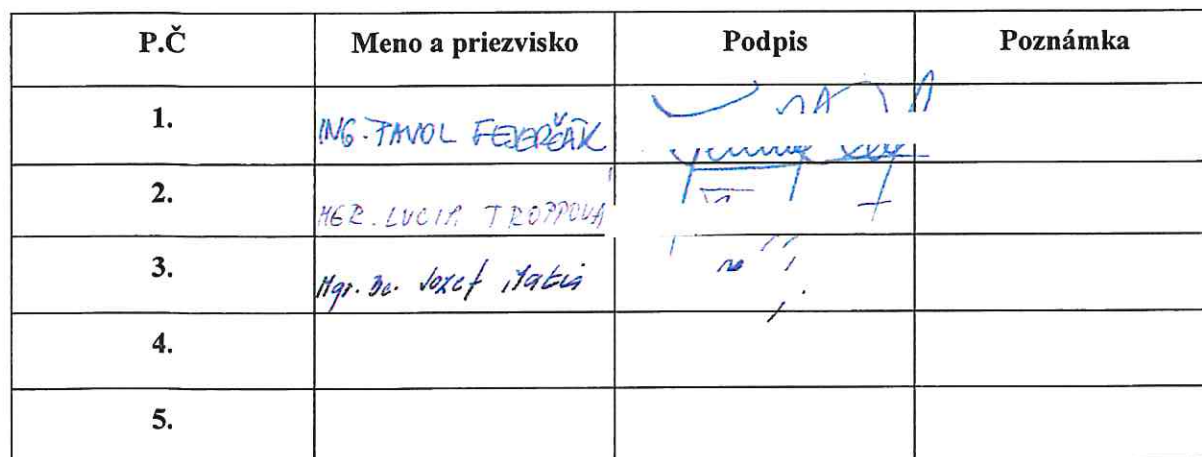 P.Č Meno a priezvisko Podpis Poznámka
1. ING. PAVOL FEJERČÁK
2. MGR. LUCIA TROPPOVÁ
3. Mgr. Bc. Jozef Matis
4.
5.